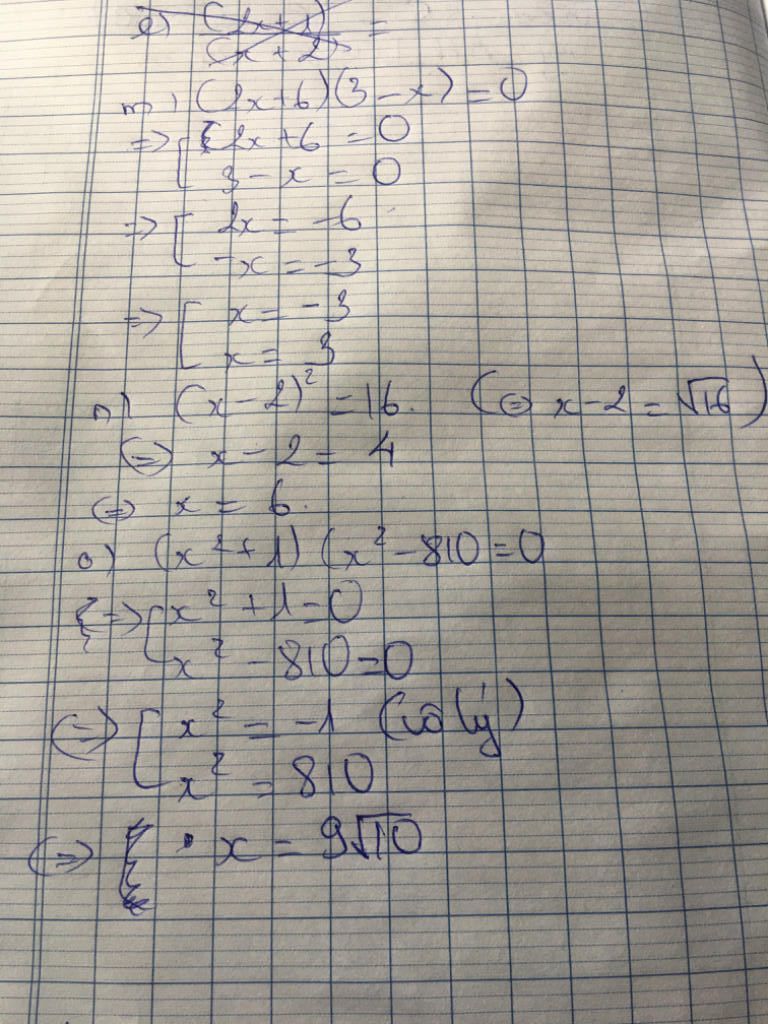 (2x+1)
(x+2) =
m) (2x+6)(3-x) = 0
=> [ 2x+6 = 0
3 - x = 0
=> [ 2x = -6
-x = -3
=> [ x = -3
x = 3
n) (x-2)² = 16. (<=> x-2 = √16)
<=> x - 2 = 4
<=> x = 6.
o) (x²+1)(x²-810=0
=> [ x²+1=0
x²-810=0
<=> [ x² = -1 (vô lý)
x² = 810
<=> x = 9√10